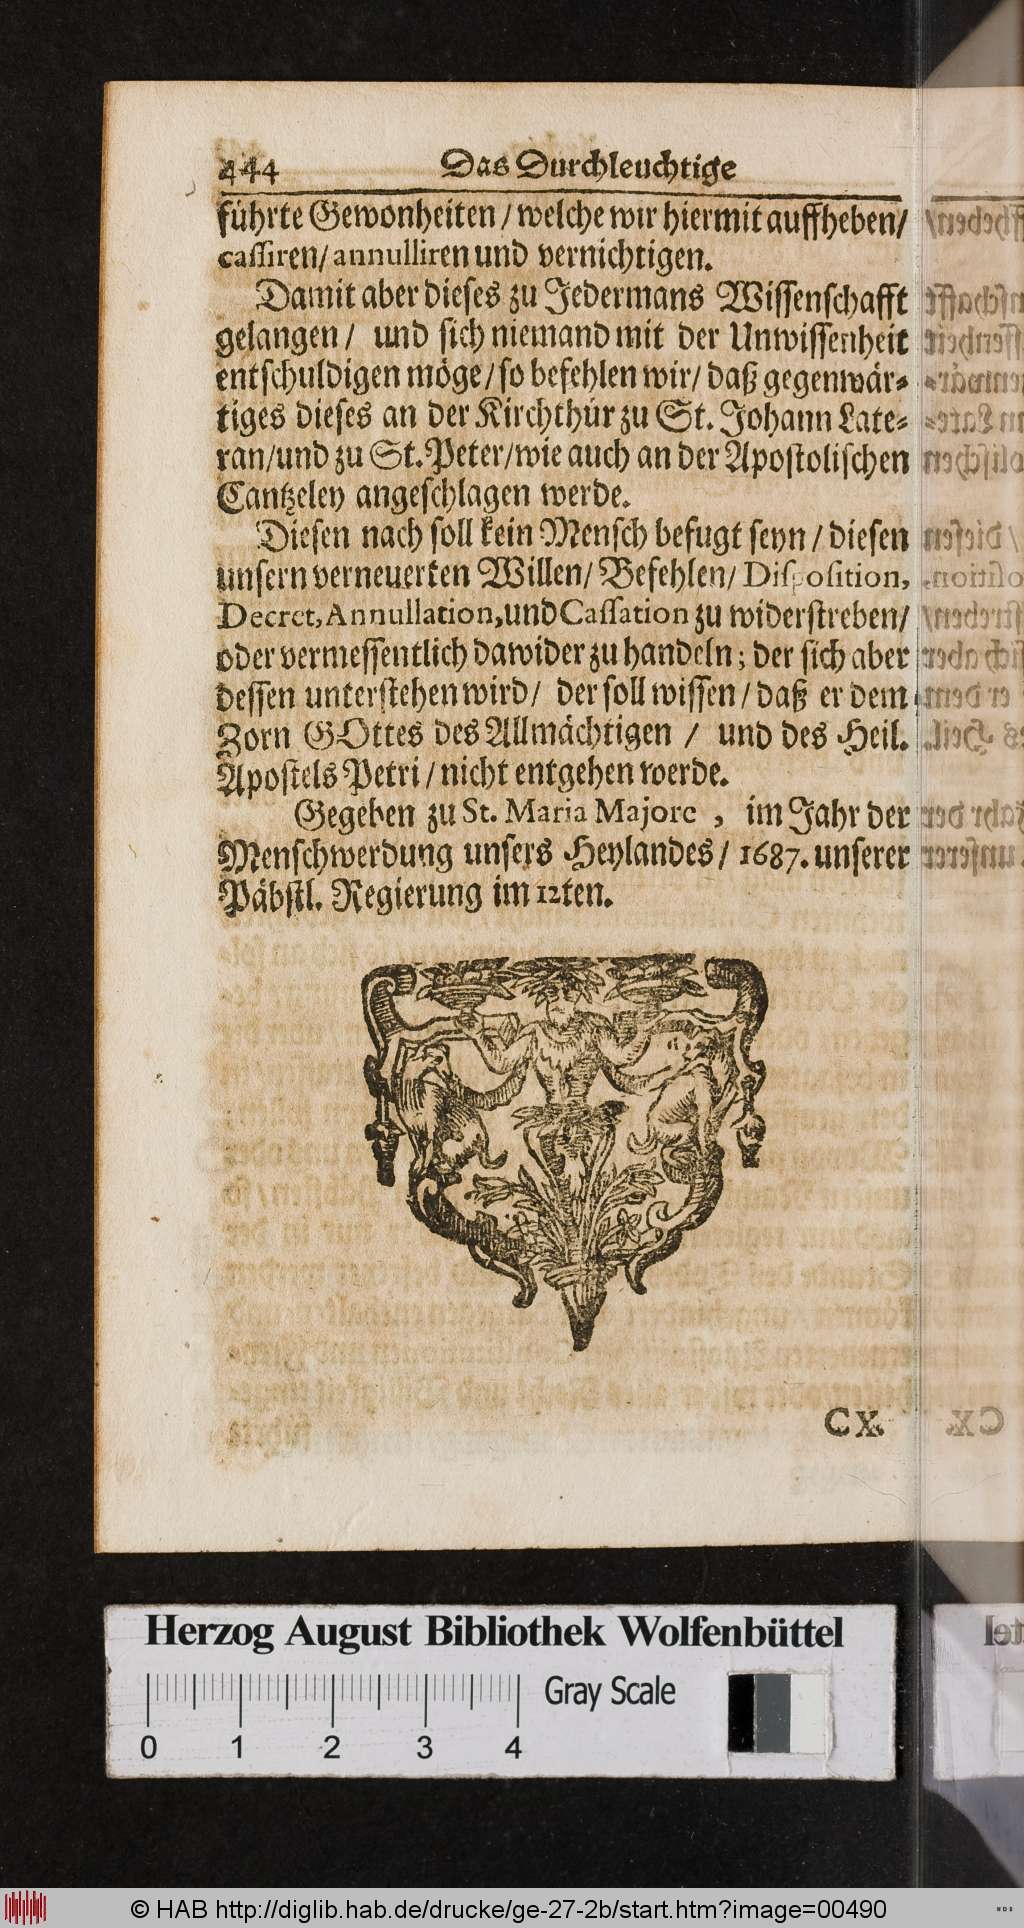 444 Das Durchleuchtige
führte Gewonheiten / welche wir hiermit auffheben /
cassiren / annulliren und vernichtigen.
Damit aber dieses zu Jedermans Wissenschafft
gelangen / und sich niemand mit der Unwissenheit
entschuldigen möge / so befehlen wir / daß gegenwär-
tiges dieses an der Kirchthür zu St. Johann Late-
ran / und zu St. Peter / wie auch an der Apostolischen
Cantzeley angeschlagen werde.
Diesen nach soll kein Mensch befugt seyn / diesen
unsern verneuerten Willen / Befehlen / Disposition,
Decret, Annullation, und Cassation zu widerstreben /
oder vermessentlich dawider zu handeln; der sich aber
dessen unterstehen wird / der soll wissen / daß er dem
Zorn GOttes des Allmächtigen / und des Heil.
Apostels Petri / nicht entgehen werde.
Gegeben zu St. Maria Majore , im Jahr der
Menschwerdung unsers Heylandes / 1687. unserer
Päbstl. Regierung im 12ten.
CX.
Herzog August Bibliothek Wolfenbüttel
Gray Scale
0 1 2 3 4
© HAB http://diglib.hab.de/drucke/ge-27-2b/start.htm?image=00490